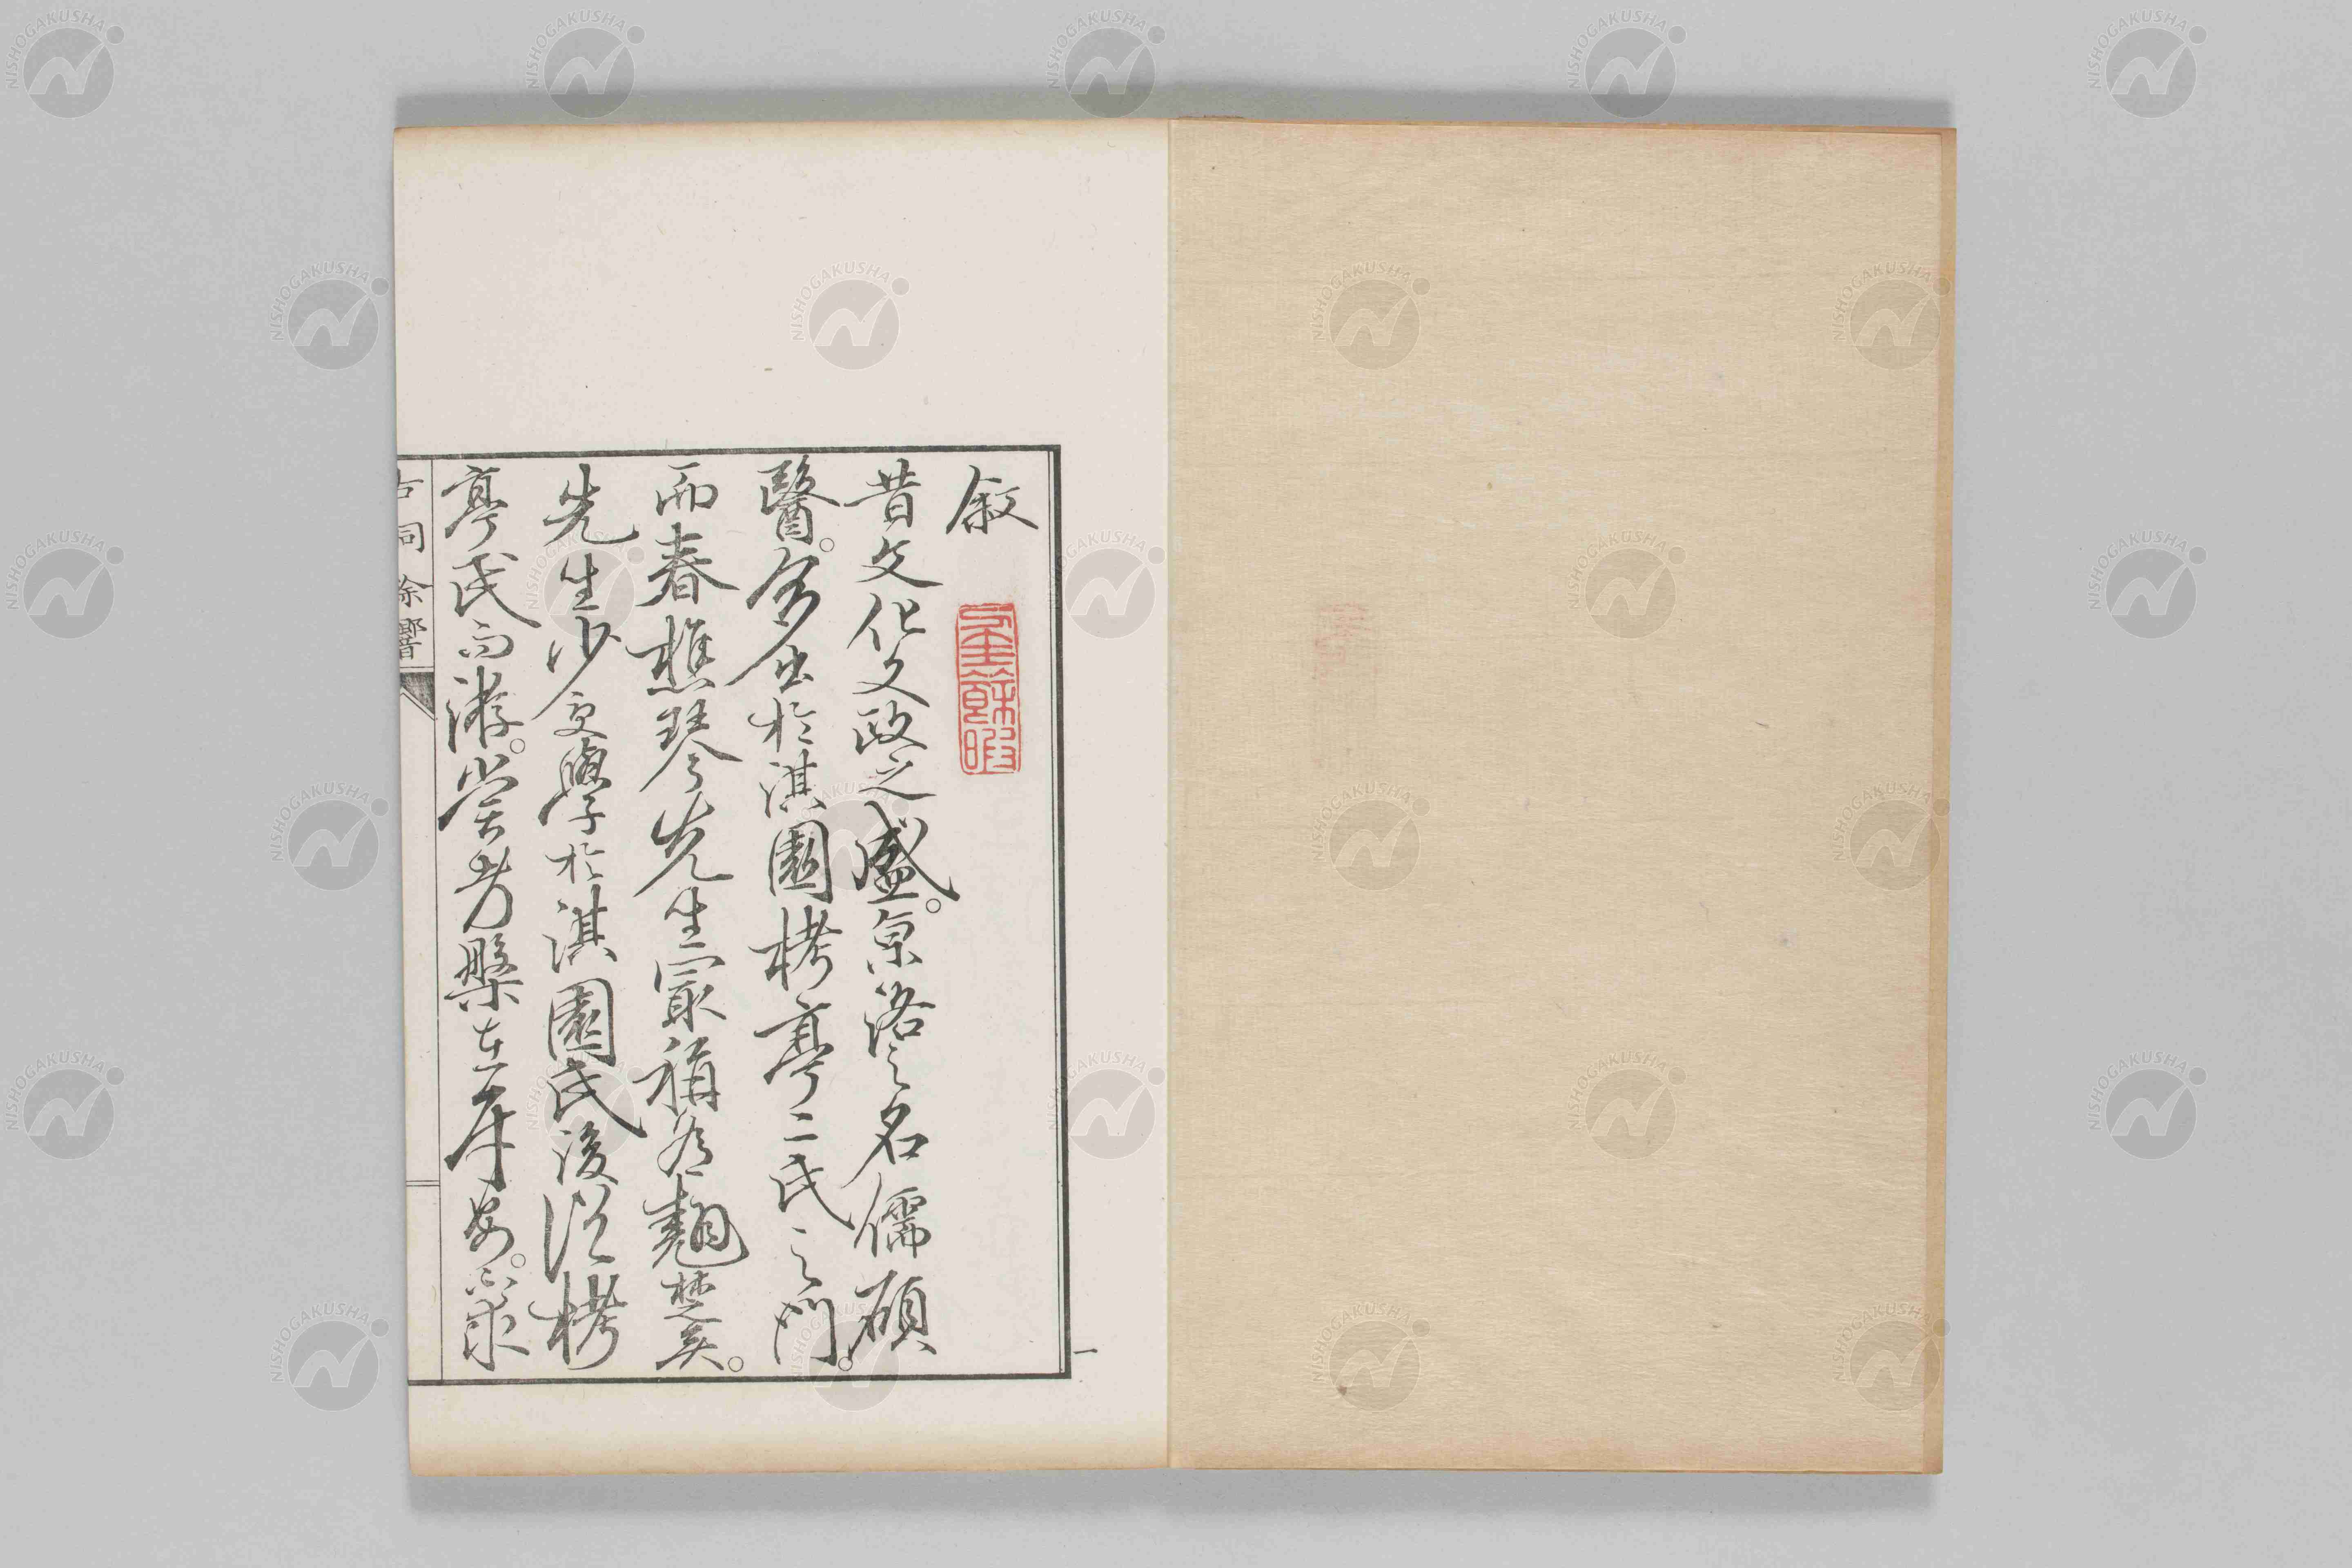 叙
昔文化文政之盛。京洛之名儒碩
醫。多出於淇園栲亭二氏之門。
而春樵琴先生冣稱為翹楚矣。
先生少受學於淇園氏後從栲
亭氏而游。嘗考槃在岸安。不求
古詞餘響
一
NISHOGAKUSHA